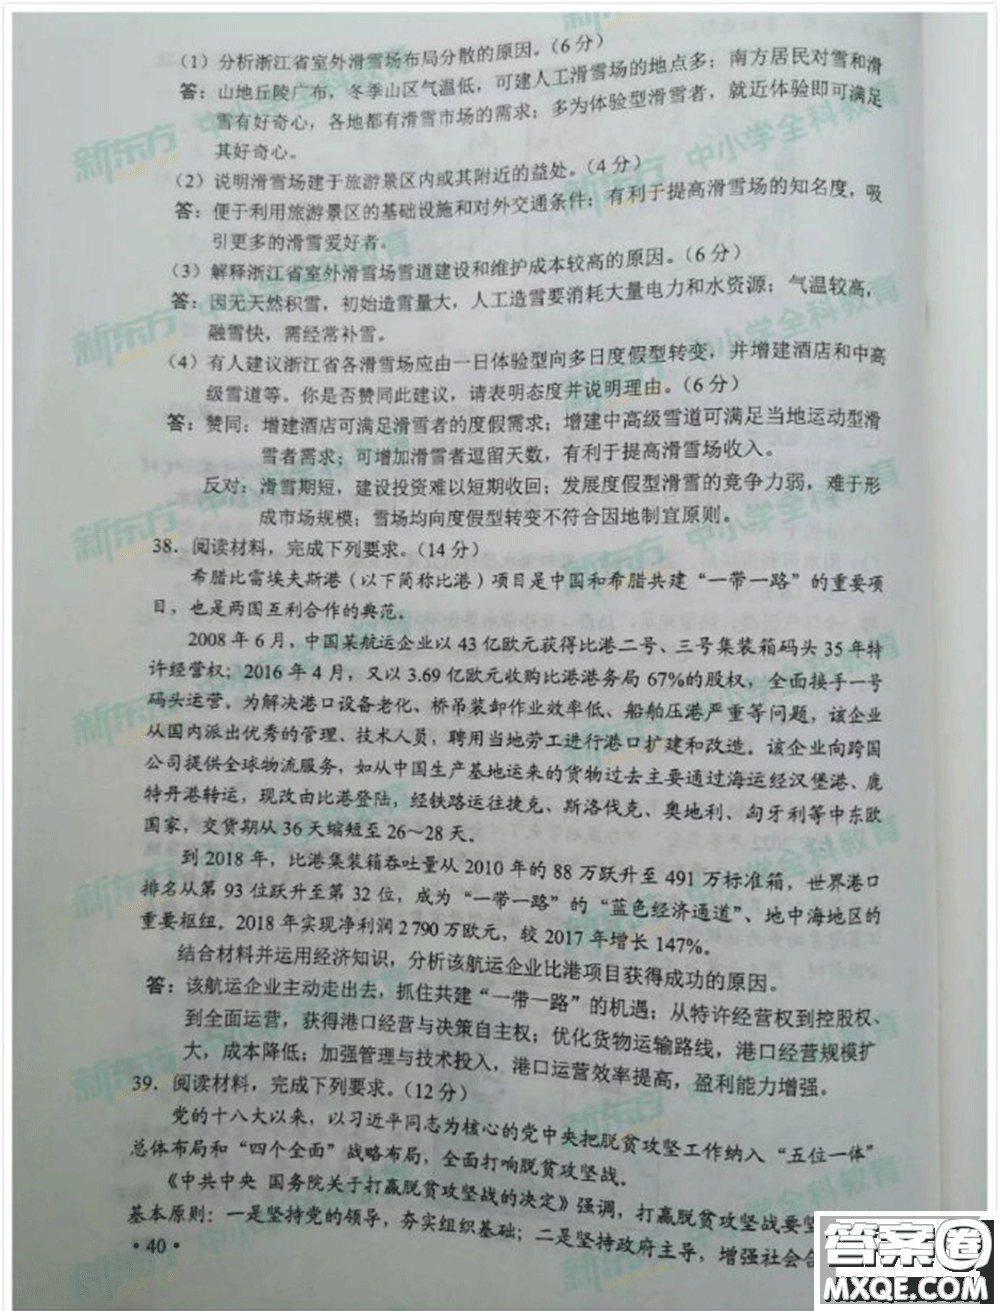 (1) 分析浙江省室外滑雪场布局分散的原因。(6 分)
答：山地丘陵广布，冬季山区气温低，可建人工滑雪场的地点多；南方居民对雪和滑
雪有好奇心，各地都有滑雪市场的需求；多为体验型滑雪者，就近体验即可满足
其好奇心。
(2) 说明滑雪场建于旅游景区内或其附近的益处。(4 分)
答：便于利用旅游景区的基础设施和对外交通条件；有利于提高滑雪场的知名度，吸
引更多的滑雪爱好者。
(3) 解释浙江省室外滑雪场雪道建设和维护成本较高的原因。(6 分)
答：因无天然积雪，初始造雪量大，人工造雪要消耗大量电力和水资源；气温较高，
融雪快，需经常补雪。
(4) 有人建议浙江省各滑雪场应由一日体验型向多日度假型转变，并增建酒店和中高
级雪道等。你是否赞同此建议，请表明态度并说明理由。(6 分)
答：赞同：增建酒店可满足滑雪者的度假需求；增建中高级雪道可满足当地运动型滑
雪者需求；可增加滑雪者逗留天数，有利于提高滑雪场收入。
反对：滑雪期短，建设投资难以短期收回；发展度假型滑雪的竞争力弱，难于形
成市场规模；雪场均向度假型转变不符合因地制宜原则。
38．阅读材料，完成下列要求。(14 分)
希腊比雷埃夫斯港（以下简称比港）项目是中国和希腊共建“一带一路”的重要项
目，也是两国互利合作的典范。
2008 年 6 月，中国某航运企业以 43 亿欧元获得比港二号、三号集装箱码头 35 年特
许经营权；2016 年 4 月，又以 3.69 亿欧元收购比港港务局 67%的股权，全面接手一号
码头运营。为解决港口设备老化、桥吊装卸作业效率低、船舶压港严重等问题，该企业
从国内派出优秀的管理、技术人员，聘用当地劳工进行港口扩建和改造。该企业向跨国
公司提供全球物流服务，如从中国生产基地运来的货物过去主要通过海运经汉堡港、鹿
特丹港转运，现改由比港登陆，经铁路运往捷克、斯洛伐克、奥地利、匈牙利等中东欧
国家，交货期从 36 天缩短至 26～28 天。
到 2018 年，比港集装箱吞吐量从 2010 年的 88 万跃升至 491 万标准箱，世界港口
排名从第 93 位跃升至第 32 位，成为“一带一路”的“蓝色经济通道”、地中海地区的
重要枢纽。2018 年实现净利润 2 790 万欧元，较 2017 年增长 147%。
结合材料并运用经济知识，分析该航运企业比港项目获得成功的原因。
答：该航运企业主动走出去，抓住共建“一带一路”的机遇；从特许经营权到控股权、
到全面运营，获得港口经营与决策自主权；优化货物运输路线，港口经营规模扩
大，成本降低；加强管理与技术投入，港口运营效率提高，盈利能力增强。
39．阅读材料，完成下列要求。(12 分)
党的十八大以来，以习近平同志为核心的党中央把脱贫攻坚工作纳入“五位一体”
总体布局和“四个全面”战略布局，全面打响脱贫攻坚战。
《中共中央 国务院关于打赢脱贫攻坚战的决定》强调，打赢脱贫攻坚战要坚
基本原则：一是坚持党的领导，夯实组织基础；二是坚持政府主导，增强社会合
· 40 ·
新东方 中小学全科教育
答案圈
MXQE.COM